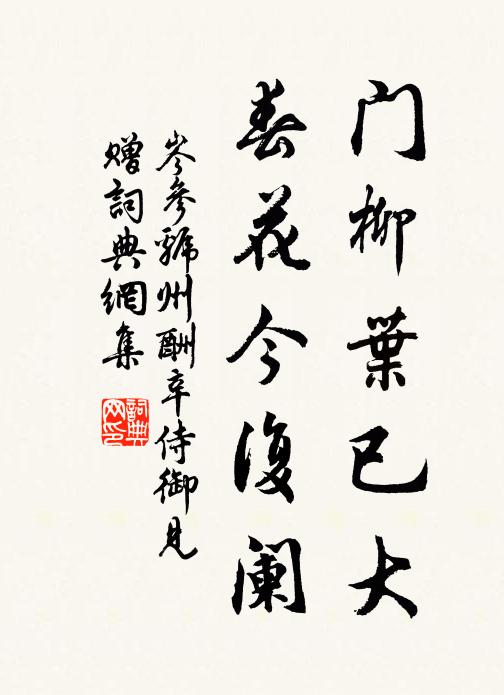 门柳葉已大
春花今復阑
岑参虢州酬辛侍御見
赠詞典網集
詞典网印